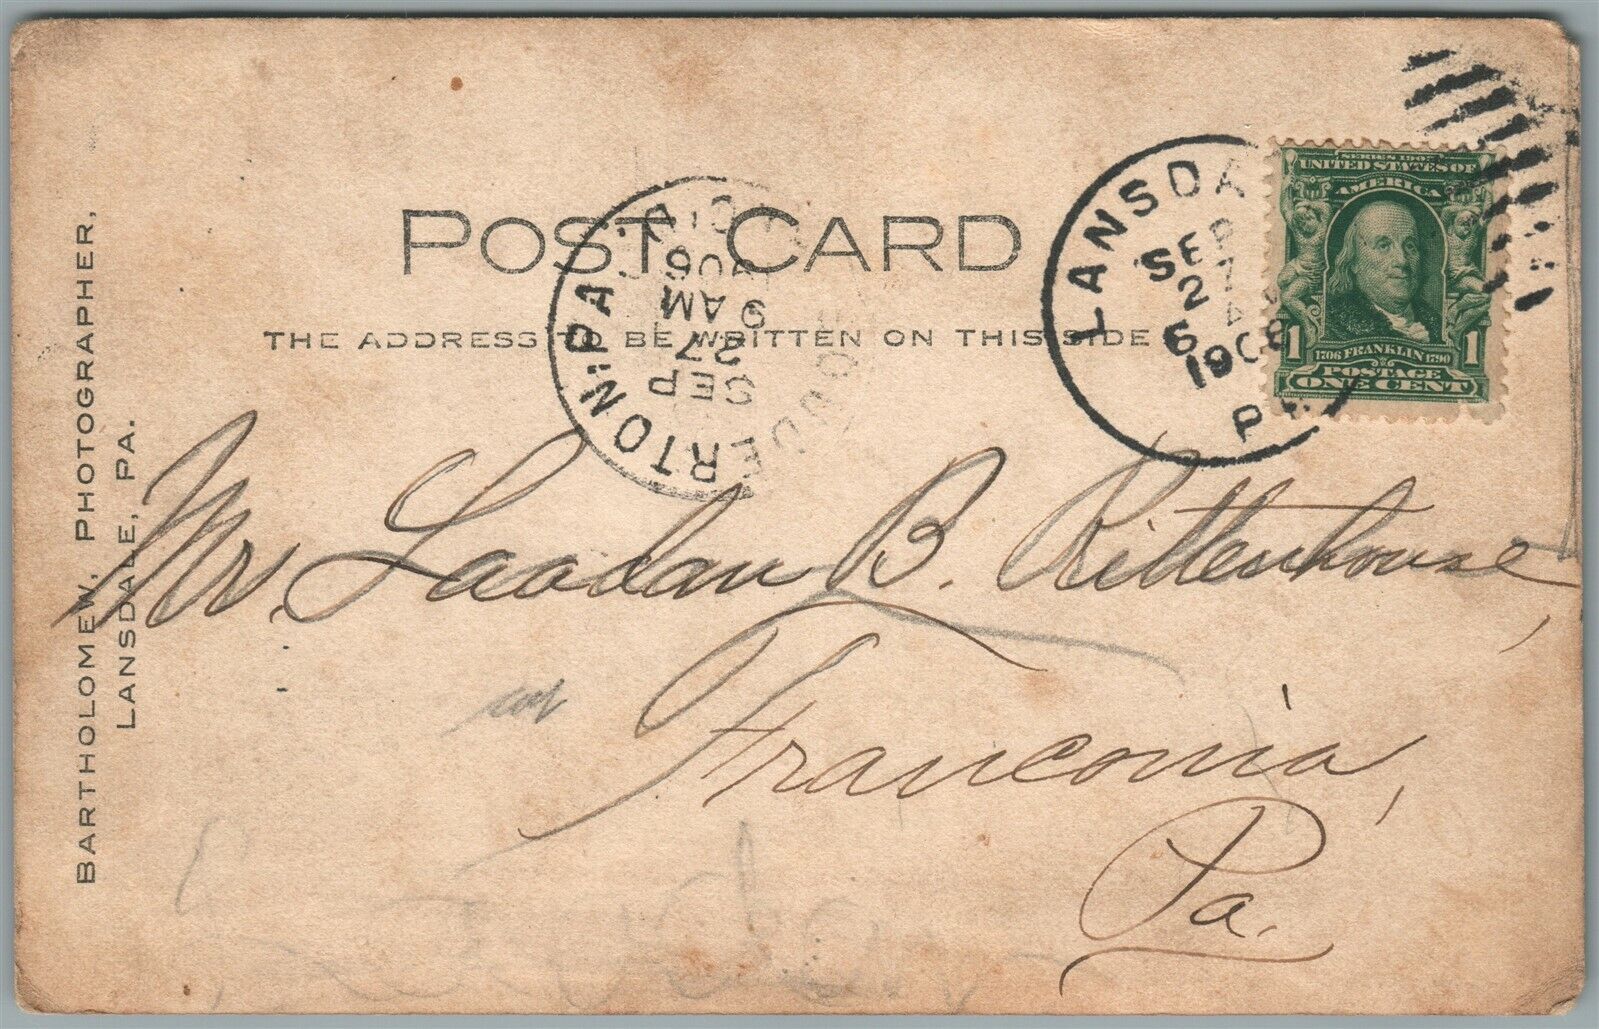 POST CARD
THE ADDRESS TO BE WRITTEN ON THIS SIDE
BARTHOLOMEW, PHOTOGRAPHER,
LANSDALE, PA.
LANSDA
SEP
27
6
1906
PA
ERTON, PA.
SEP
27
9 AM
1906
REC'D.
SERIES 1902
UNITED STATES OF
AMERICA
1 1
1706 FRANKLIN 1790
POSTAGE
ONE CENT
Mr. Laadan B. Rittenhouse,
Franconia,
Pa.